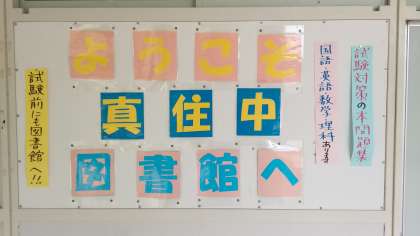 ようこそ
真住中
図書館へ
試験対策の本 問題集
国語・英語・数学・理科あります
試験前にも図書館へ!!